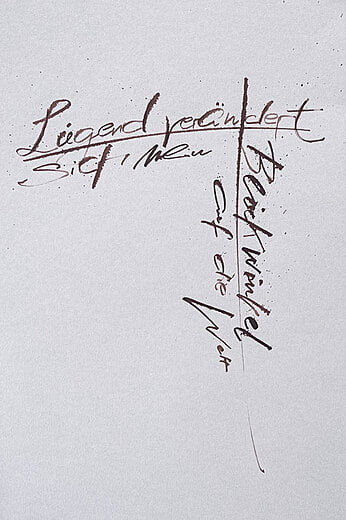 Lügend verändert
Sich, Mein
Blickwinkel
auf die
Welt